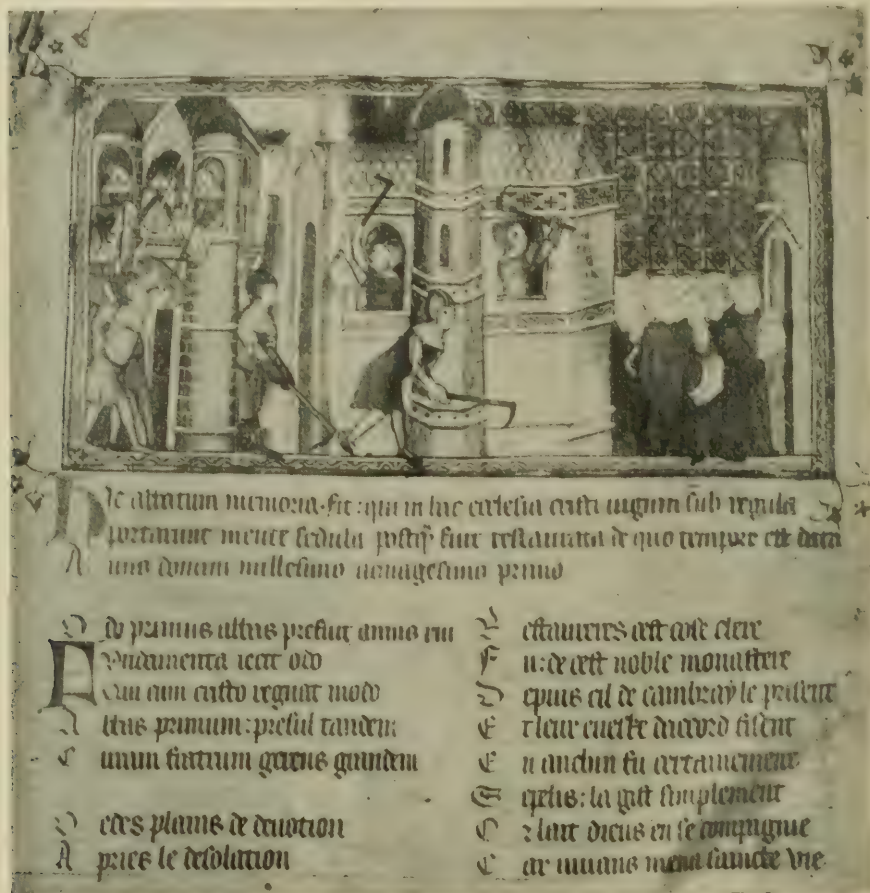 Hic abbatum memoria fit: qui in hac ecclesia cristi iugum sub regula
portarunt mente sedula postq̃ fuit restaurata de quo tempore est data
Anno domini millesimo nonagesimo primo
Odo primus abbas prefuit annis
Fundamenta iecit odo
Qui cum cristo regnat modo
Abbas primum: presul tandem
fratrum
Oedes plains de devotion
Apries le desolation
Restaureres cest cose clere
Fu: de cest noble monastere
Depuis cil de cambray le prisent
Et leur eveske dacord fisent
En anchin fu certainement
Sepelis: la gist simplement
Or lait dieus en se compagnie
Car vivans mena saincte vie